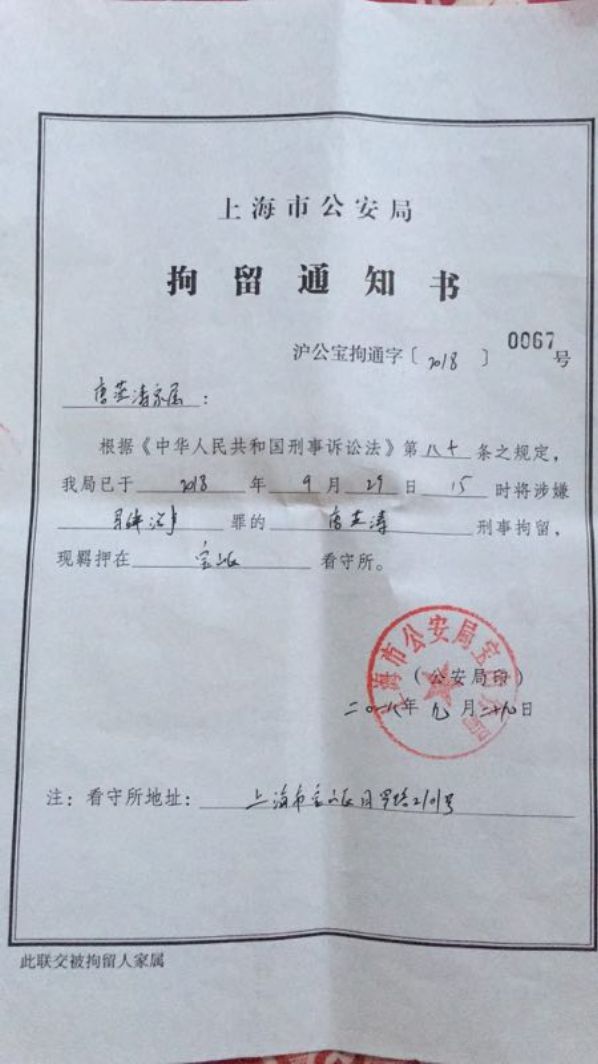 上海市公安局
拘留通知书
沪公宝拘通字〔2018〕0067号
唐 清家属：
根据《中华人民共和国刑事诉讼法》第八十条之规定，
我局已于2018年9月29日15时将涉嫌
寻衅滋事罪的唐 刑事拘留，
现羁押在宝山看守所。
上海市公安局宝山分局
（公安局印）
二〇一八年九月二十九日
注：看守所地址：上海市宝山区月罗路2101号
此联交被拘留人家属